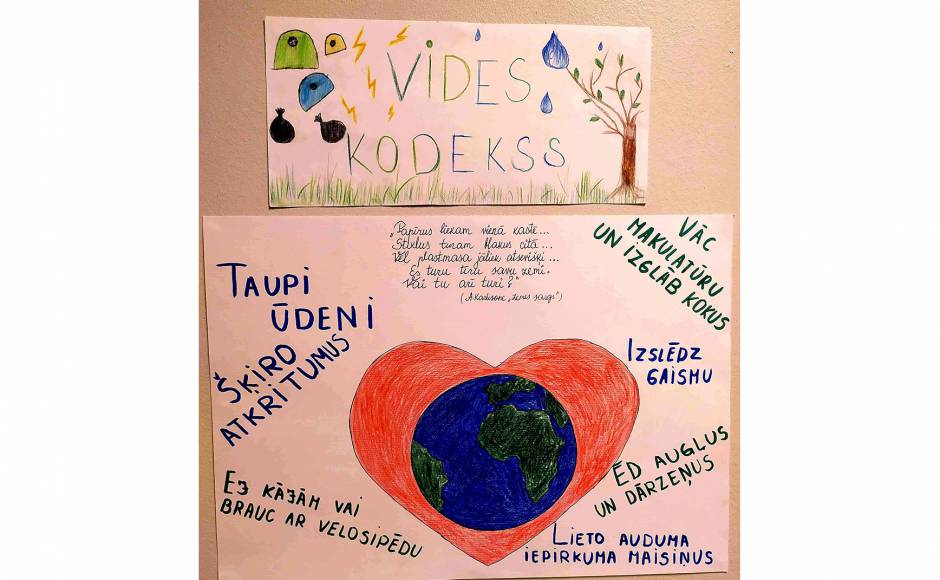 VIDES
KODEKSS
„Papīrus liekam vienā kastē...
Stiklus turam blakus citā...
Vēl plastmasa jāliek atsevišķi...
Es turu tīru savu zemi.
Vai tu arī turi?"
(A.Kadisone „Zemes sargs")
VĀC
MAKULATŪRU
UN IZGLĀB KOKUS
TAUPI
ŪDENI
ŠĶIRO
ATKRITUMUS
IZSLĒDZ
GAISMU
ĒD AUGĻUS
UN DĀRZEŅUS
EJ KĀJĀM VAI
BRAUC AR VELOSIPĒDU
LIETO AUDUMA
IEPIRKUMA MAISIŅUS